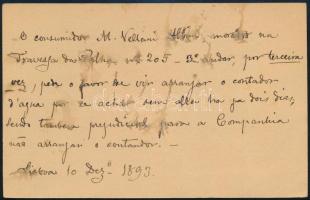 O consumidor M. Vellani morador na
Travessa da Palha, no 205 - 3º andar, por terceira
vez, pede o favor de vir arranjar o contador
d'agua por se achar sem ella ha ja dois dias,
sendo tambem prejudicial para a Companhia
não arranjar o contador. —
Lisboa 10 Dezº 1893.